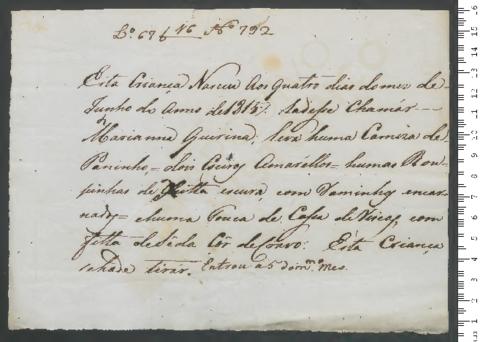 Lo 67 f 46 No 792
Esta Criança Nasceu Aos quatro dias do mez de
Junho do Anno de 1815: hadesse Chamár
Marianna Quirina, leva huma Camiza de
Paninho = dois Coeiros Amarellos = humas Rou-
pinhas de Chitta escura, com Raminhos encar-
nados = e huma Touca de Cassa de Riscas, com
fitta de Seda Côr de Cravo: Esta Criança
sehade tirar. Entrou a 5 do mmo mes.